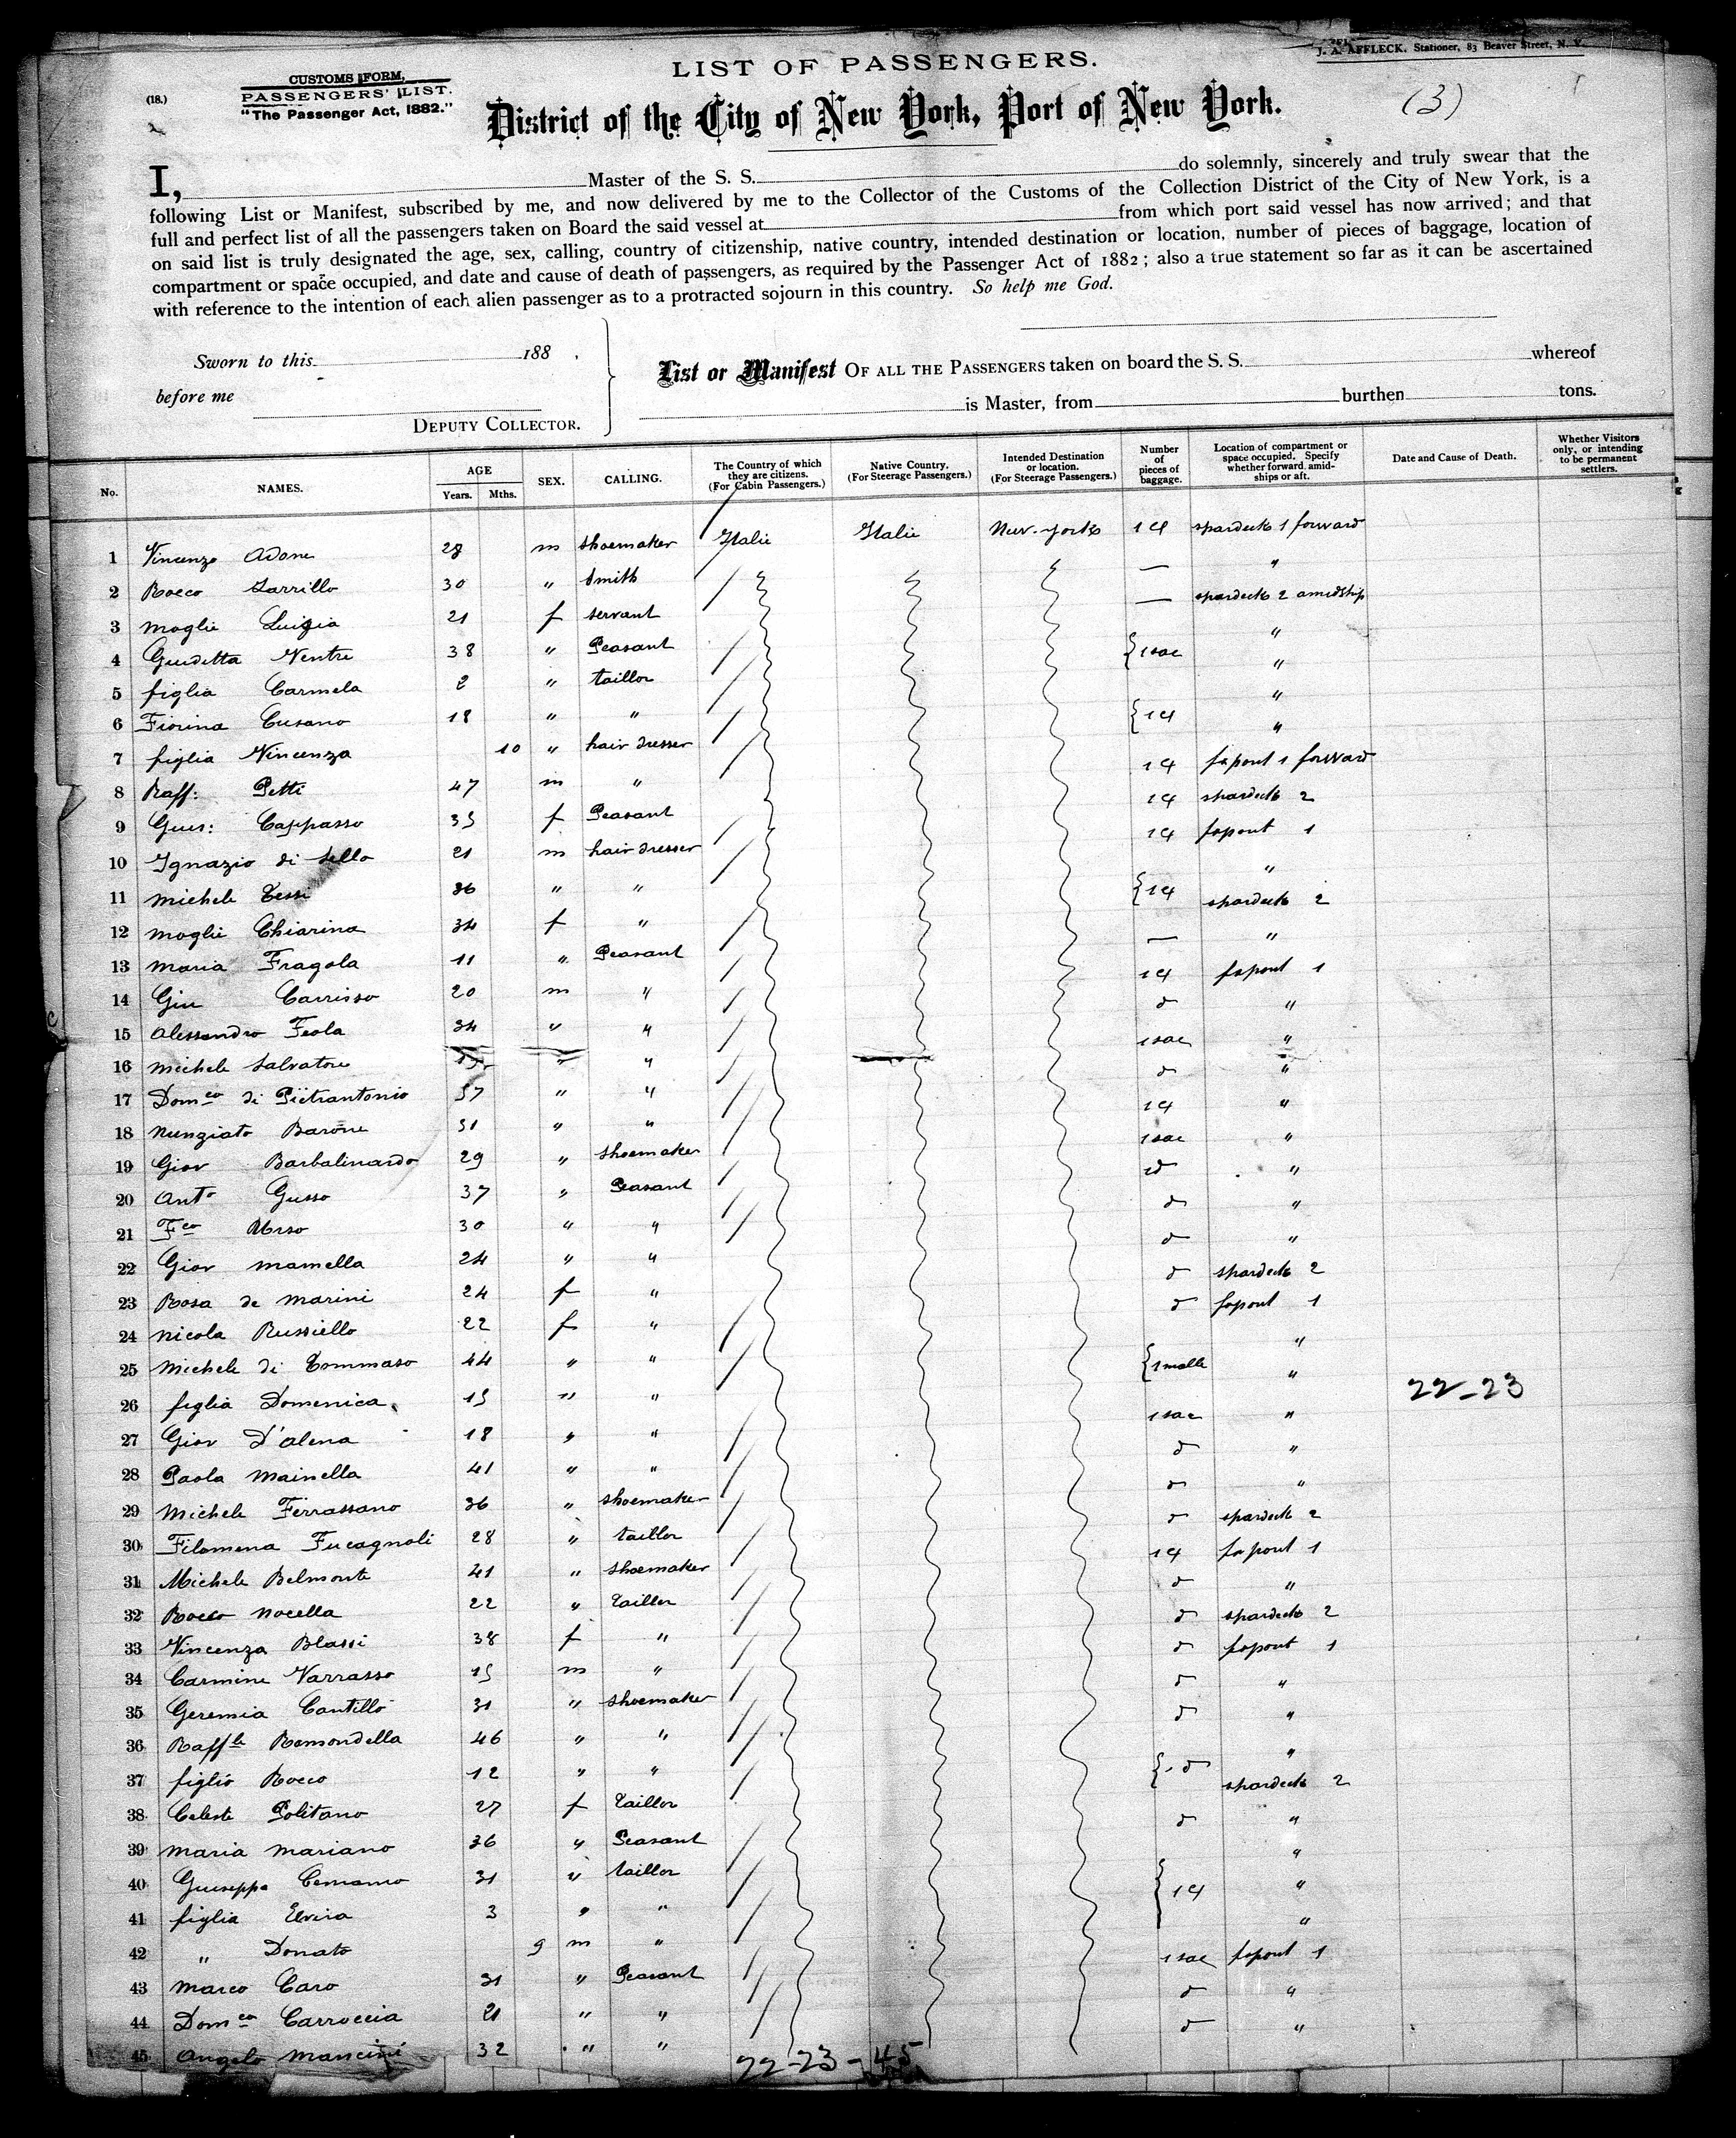 J. A. AFFLECK, Stationer, 83 Beaver Street, N. Y.
(18.)
CUSTOMS FORM,
PASSENGERS' LIST.
"The Passenger Act, 1882."
LIST OF PASSENGERS.
District of the City of New York, Port of New York.
(3)
I, Master of the S. S. do solemnly, sincerely and truly swear that the
following List or Manifest, subscribed by me, and now delivered by me to the Collector of the Customs of the Collection District of the City of New York, is a
full and perfect list of all the passengers taken on Board the said vessel at from which port said vessel has now arrived; and that
on said list is truly designated the age, sex, calling, country of citizenship, native country, intended destination or location, number of pieces of baggage, location of
compartment or space occupied, and date and cause of death of passengers, as required by the Passenger Act of 1882; also a true statement so far as it can be ascertained
with reference to the intention of each alien passenger as to a protracted sojourn in this country. So help me God.
Sworn to this 188 .
before me
DEPUTY COLLECTOR.
List or Manifest OF ALL THE PASSENGERS taken on board the S. S. whereof
is Master, from burthen tons.
No. NAMES. AGE Years. Mths. SEX. CALLING. The Country of which they are citizens. (For Cabin Passengers.) Native Country. (For Steerage Passengers.) Intended Destination or location. (For Steerage Passengers.) Number of pieces of baggage. Location of compartment or space occupied. Specify whether forward, amidships or aft. Date and Cause of Death. Whether Visitors only, or intending to be permanent settlers.
1 Vincenzo Adone 28 m shoemaker Italie Italie New-york 1 cf spardeck 1 forward
2 Rocco Sarrillo 30 " Smith — "
3 moglie Luigia 21 f servant — spardeck 2 amidship
4 Giuditta Ventre 38 " Peasant 1 sac "
5 figlia Carmela 2 " taillor "
6 Fiorina Cusano 18 " " 1 cf "
7 figlia Vincenza 10 " hair dresser "
8 Raff: Petti 47 m " 1 cf fapont 1 forward
9 Gius: Cappasso 35 f Peasant 1 cf spardeck 2
10 Ignazio di Lello 21 m hair dresser 1 cf fapont 1
11 Michele Tessi 36 " " 1 cf "
12 moglie Chiarina 34 f " spardeck 2
13 Maria Fragola 11 " Peasant — "
14 Giu Carrisso 20 m " 1 cf fapont 1
15 Alessandro Feola 34 " " d "
16 Michele Salvatore " " 1 sac "
17 Dom.co di Pietrantonio 37 " " d "
18 Nunziato Barone 31 " " 1 cf "
19 Giov Barbalinardo 29 " shoemaker 1 sac "
20 Ant.o Gusso 37 " Peasant 1 d "
21 F.co Urso 30 " " d "
22 Giov Mamella 24 " " d "
23 Rosa de Marini 24 f " d spardeck 2
24 Nicola Russiello 22 f " d fapont 1
25 Michele di Tommaso 44 " " 1 malle "
26 figlia Domenica 15 " " "
27 Giov D'Alena 18 " " 1 sac "
28 Paola Mainella 41 " " d "
29 Michele Ferrassano 36 " shoemaker d "
30 Filomena Fucagnoli 28 " taillor d spardeck 2
31 Michele Belmonte 41 " shoemaker 1 cf fapont 1
32 Rocco Nocella 22 " taillor d "
33 Vincenza Blassi 38 f " d spardeck 2
34 Carmine Varrasso 15 m " d fapont 1
35 Geremia Cantillo 31 " shoemaker d "
36 Raff.le Remondella 46 " " d "
37 figlio Rocco 12 " " 1 d "
38 Celeste Politano 27 f taillor spardeck 2
39 Maria Mariano 36 " Peasant d "
40 Giuseppa Cemamo 31 " taillor 1 cf "
41 figlia Elvira 3 " " "
42 " Donato 9 m " "
43 Marco Caro 31 " Peasant 1 sac fapont 1
44 Dom.co Carroccia 21 " " d "
45 Angelo Mancini 32 " " d "
22-23
22-23-45